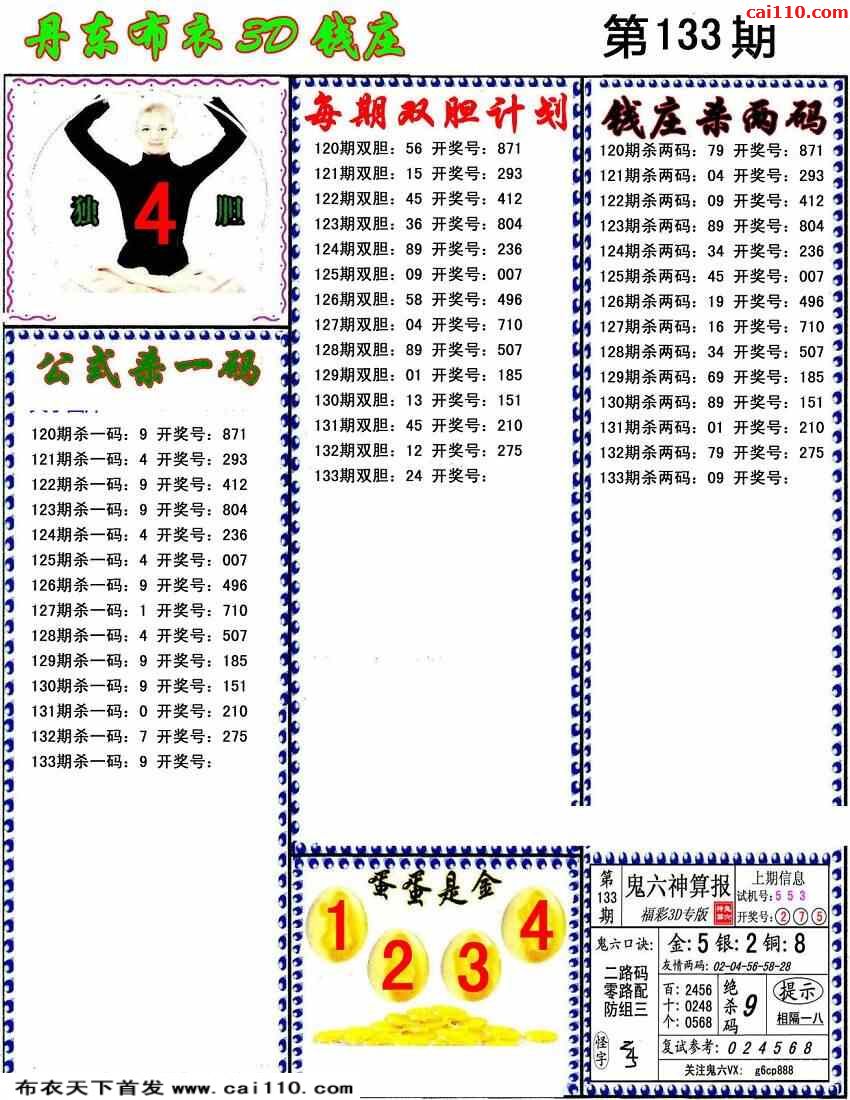 cai110.com
丹东布衣3D钱庄
第133期
独 4 胆
公式杀一码
120期杀一码：9 开奖号：871
121期杀一码：4 开奖号：293
122期杀一码：9 开奖号：412
123期杀一码：9 开奖号：804
124期杀一码：4 开奖号：236
125期杀一码：4 开奖号：007
126期杀一码：9 开奖号：496
127期杀一码：1 开奖号：710
128期杀一码：4 开奖号：507
129期杀一码：9 开奖号：185
130期杀一码：9 开奖号：151
131期杀一码：0 开奖号：210
132期杀一码：7 开奖号：275
133期杀一码：9 开奖号：
每期双胆计划
120期双胆：56 开奖号：871
121期双胆：15 开奖号：293
122期双胆：45 开奖号：412
123期双胆：36 开奖号：804
124期双胆：89 开奖号：236
125期双胆：09 开奖号：007
126期双胆：58 开奖号：496
127期双胆：04 开奖号：710
128期双胆：89 开奖号：507
129期双胆：01 开奖号：185
130期双胆：13 开奖号：151
131期双胆：45 开奖号：210
132期双胆：12 开奖号：275
133期双胆：24 开奖号：
钱庄杀两码
120期杀两码：79 开奖号：871
121期杀两码：04 开奖号：293
122期杀两码：09 开奖号：412
123期杀两码：89 开奖号：804
124期杀两码：34 开奖号：236
125期杀两码：45 开奖号：007
126期杀两码：19 开奖号：496
127期杀两码：16 开奖号：710
128期杀两码：34 开奖号：507
129期杀两码：69 开奖号：185
130期杀两码：89 开奖号：151
131期杀两码：01 开奖号：210
132期杀两码：79 开奖号：275
133期杀两码：09 开奖号：
蛋蛋是金
1 2 3 4
第133期
鬼六神算报
福彩3D专版
上期信息
试机号：553
开奖号：②⑦⑤
鬼六口诀：
二路码
零路配
防组三
金：5 银：2 铜：8
友情两码：02-04-56-58-28
百：2456
十：0248
个：0568
绝杀码 9
提示
相隔一八
怪字
复试参考：024568
关注鬼六VX： g6cp888
布衣天下首发 www.cai110.com